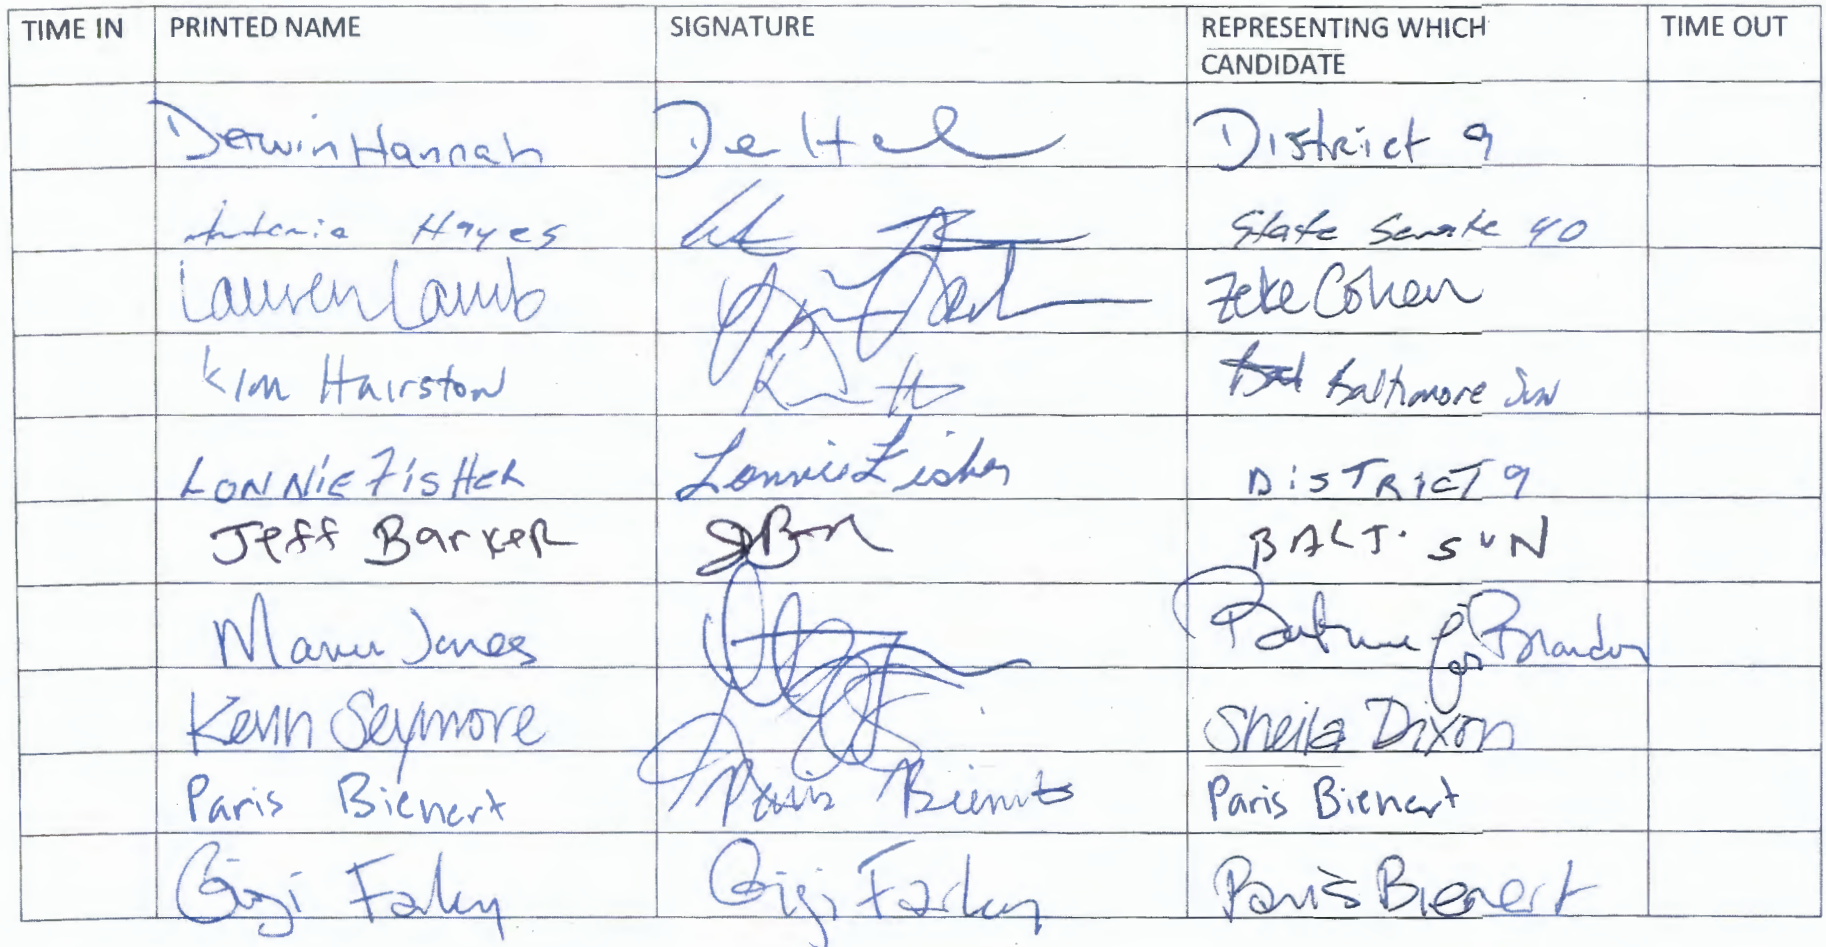 TIME IN PRINTED NAME SIGNATURE REPRESENTING WHICH CANDIDATE TIME OUT
Derwin Hannah District 9
Antonio Hayes State Senate 40
Lauren Lamb Zeke Cohen
Kim Hairston Baltimore Sun
LONNIE FISHER Lonnie Fisher DISTRICT 9
Jeff Barker BALT. SUN
Jones for Brandon
Kevin Seymore Sheila Dixon
Paris Bienert Paris Paris Bienert
Gigi Gigi Paris Bienert